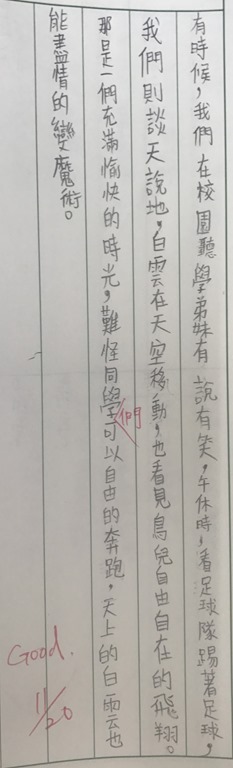 有時候，我們在校園聽學弟妹有說有笑，午休時，看足球隊踢著足球，
我們則談天說地，白雲在天空移動，也看見鳥兒自由自在的飛翔。
那是一們充滿愉快的時光，難怪同學們可以自由的奔跑，天上的白雲也
能盡情的變魔術。
Good.
11/20